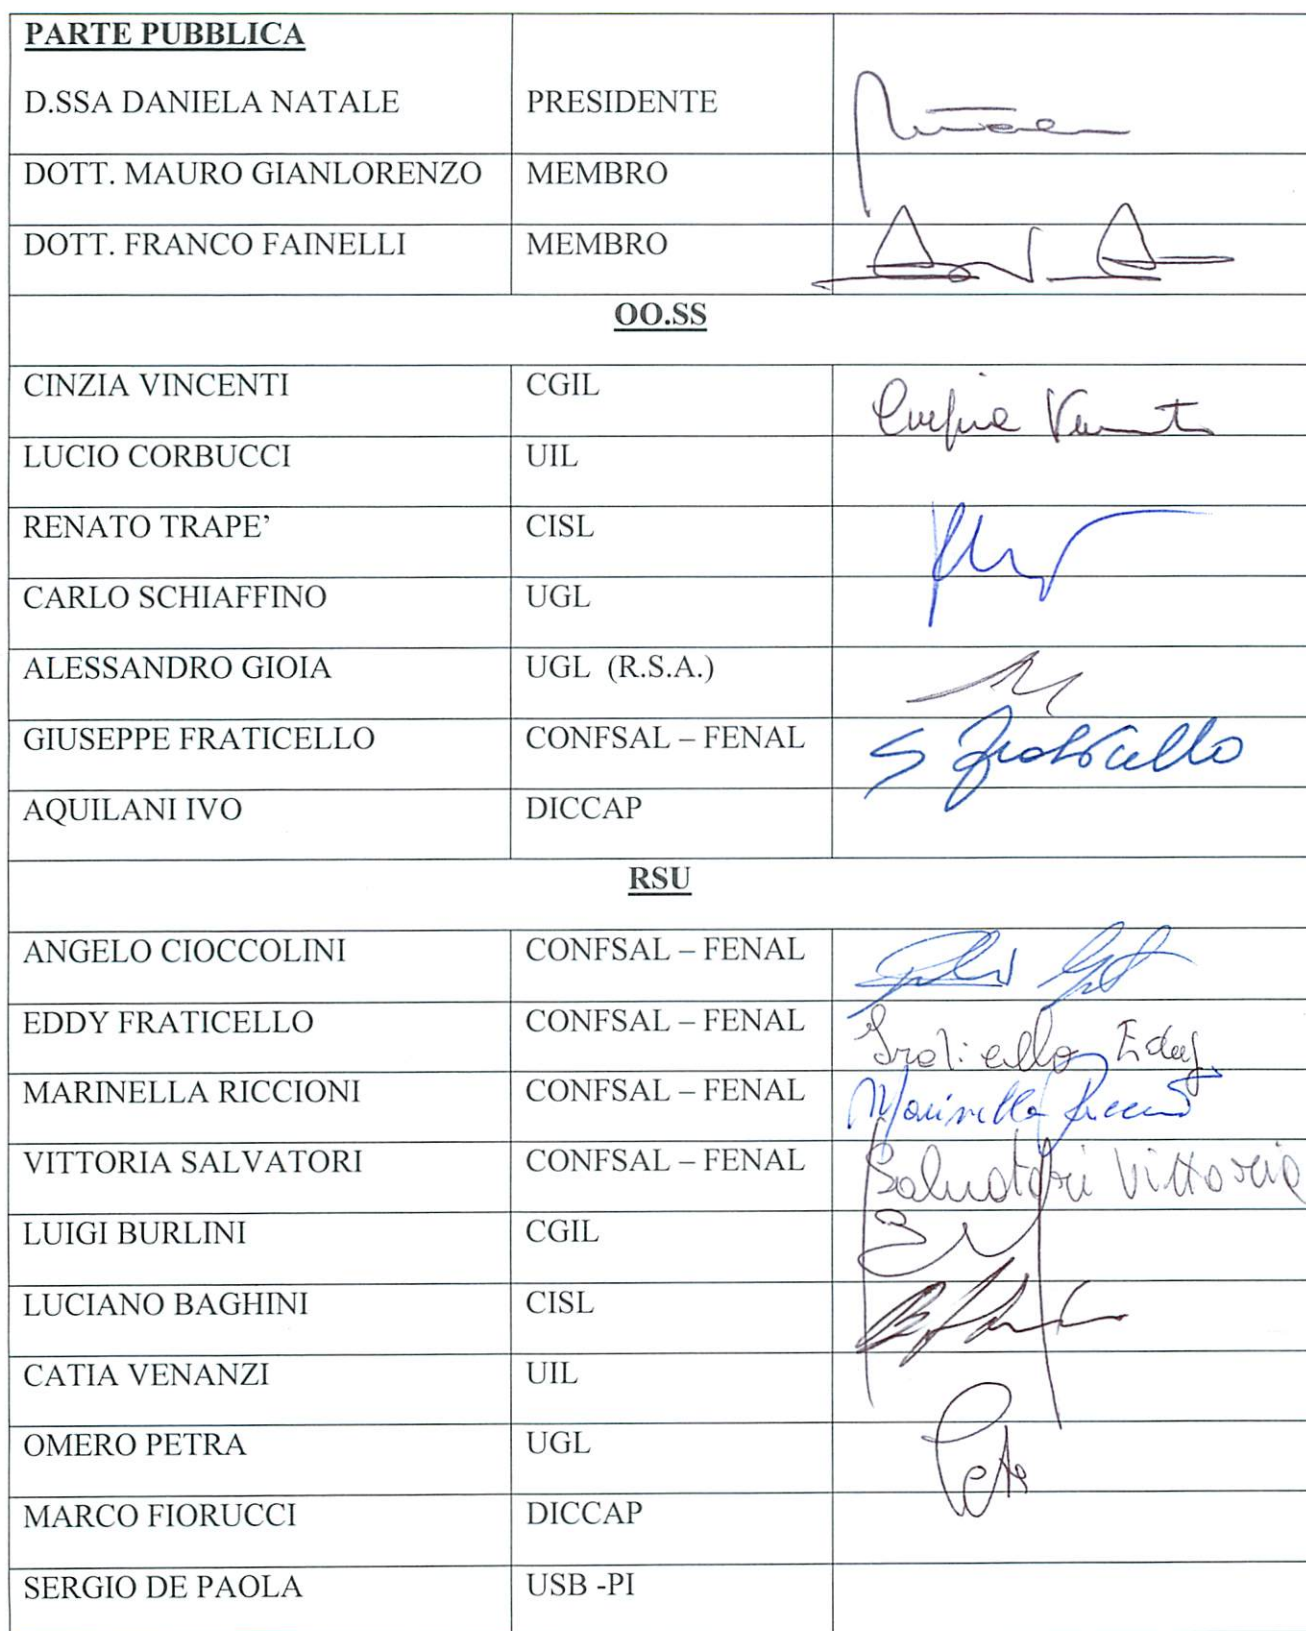 PARTE PUBBLICA
D.SSA DANIELA NATALE PRESIDENTE
DOTT. MAURO GIANLORENZO MEMBRO
DOTT. FRANCO FAINELLI MEMBRO
OO.SS
CINZIA VINCENTI CGIL
LUCIO CORBUCCI UIL
RENATO TRAPE’ CISL
CARLO SCHIAFFINO UGL
ALESSANDRO GIOIA UGL (R.S.A.)
GIUSEPPE FRATICELLO CONFSAL – FENAL
AQUILANI IVO DICCAP
RSU
ANGELO CIOCCOLINI CONFSAL – FENAL
EDDY FRATICELLO CONFSAL – FENAL Fraticello Eddy
MARINELLA RICCIONI CONFSAL – FENAL Marinella
VITTORIA SALVATORI CONFSAL – FENAL Salvatori Vittoria
LUIGI BURLINI CGIL
LUCIANO BAGHINI CISL
CATIA VENANZI UIL
OMERO PETRA UGL
MARCO FIORUCCI DICCAP
SERGIO DE PAOLA USB -PI